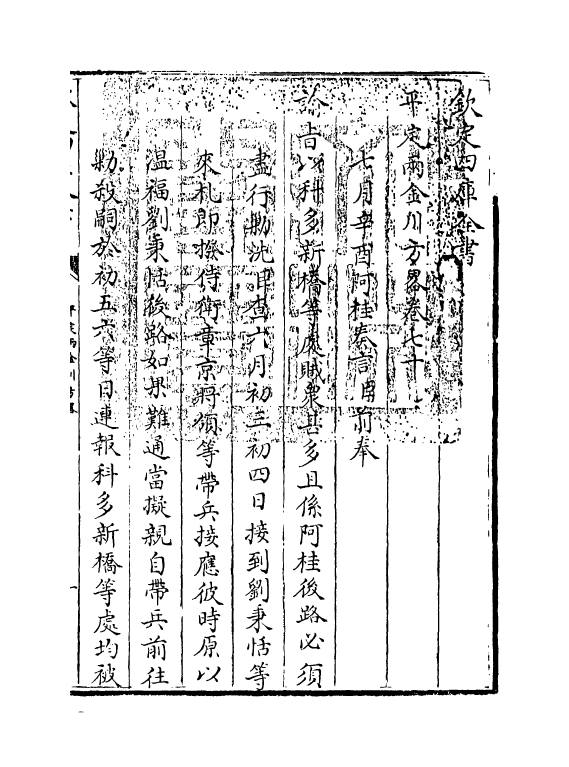 欽定四庫全書
平定兩金川方畧卷七十
七月辛酉阿桂奏言曰前奉
諭旨以科多新橋等處賊衆甚多且係阿桂後路必須
盡行勦洗臣查六月初三初四日接到劉秉恬等
來札即撥侍衛章京將領等帶兵接應彼時原以
溫福劉秉恬後路如果難通當擬親自帶兵前往
勦殺嗣於初五六等日連報科多新橋等處均被
平定兩金川方畧
一